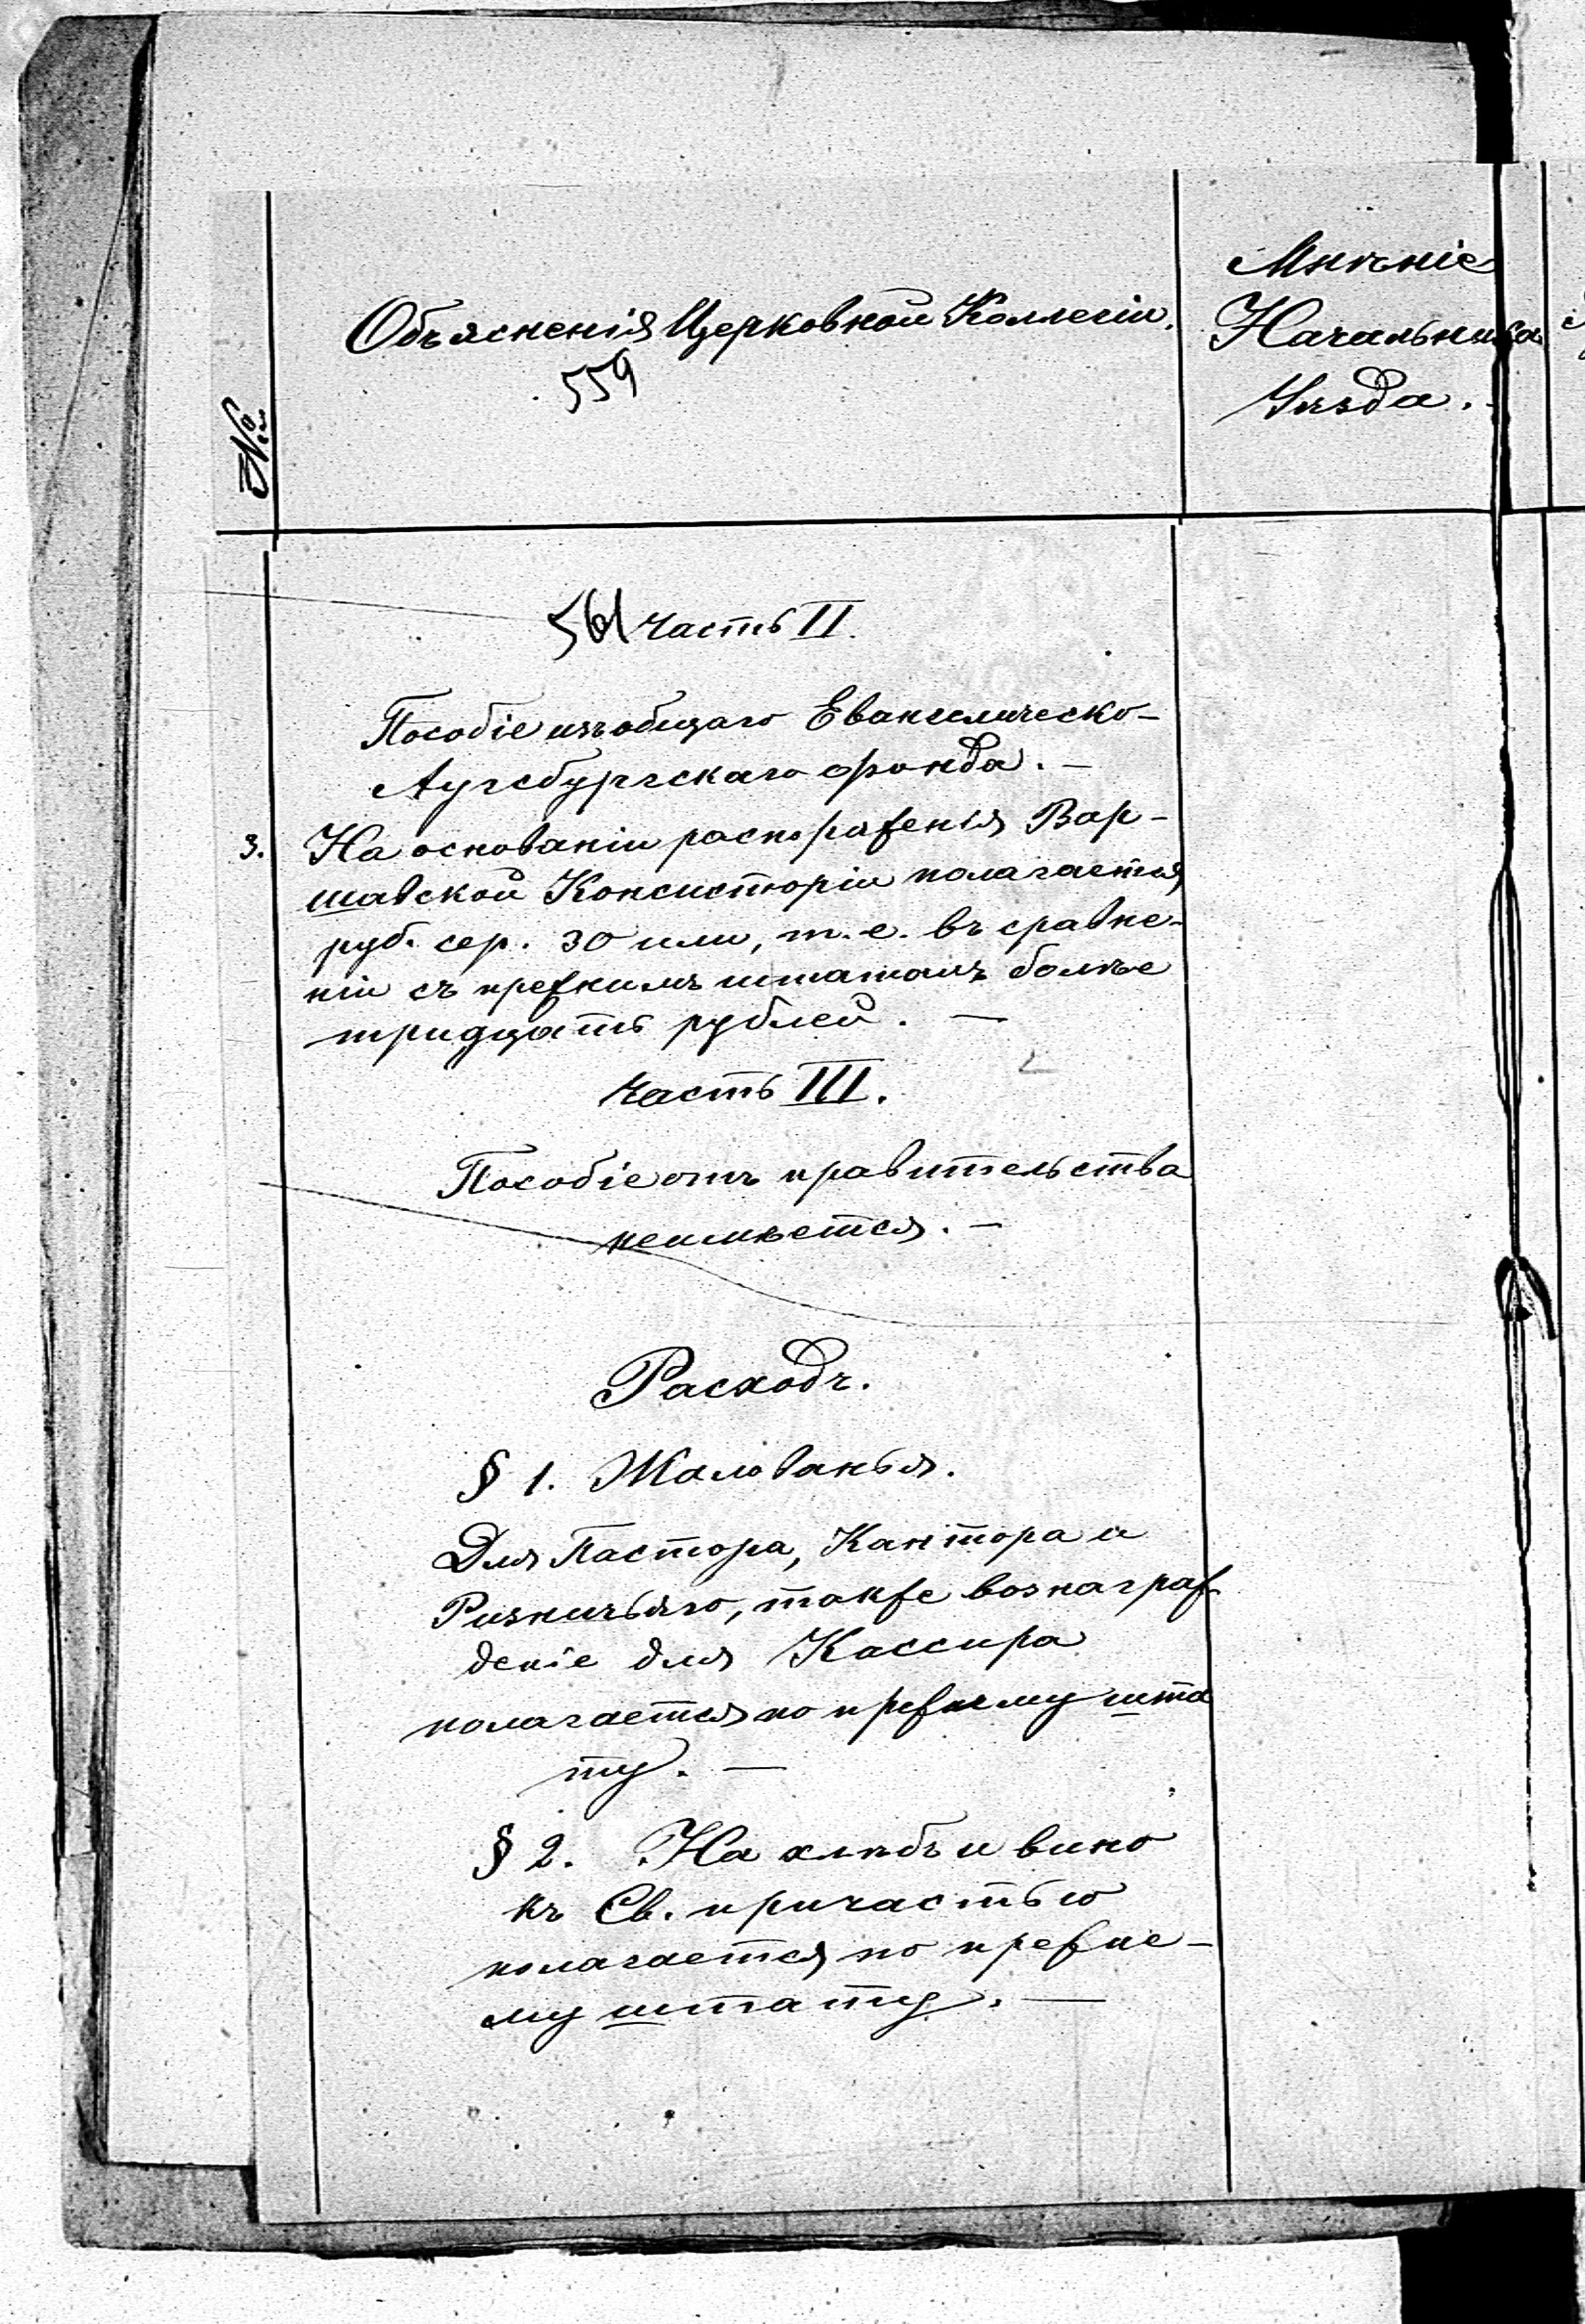 №
Объясненія Церковной Коллегіи.
559
Мнѣніе
Начальника
Уѣзда.
561 Часть II.
Пособіе изъ общаго Евангелическо-
Аугсбургскаго фонда. —
3. На основаніи распоряженія Вар-
шавской Консисторіи полагается
руб. сер. 30 или, т. е. въ сравне-
ніи съ прежнимъ штатомъ болѣе
тридцать рублей. —
Часть III.
Пособіе отъ правительства
неимѣется. —
Расходъ.
§ 1. Жалованья.
Для Пастора, Кантора и
Ризничьяго, также вознаграж-
деніе для Кассира
полагается по прежнему шта
ту. —
§ 2. На хлѣбъ и вино
къ Св. причастью
полагается по прежне-
му штату. —